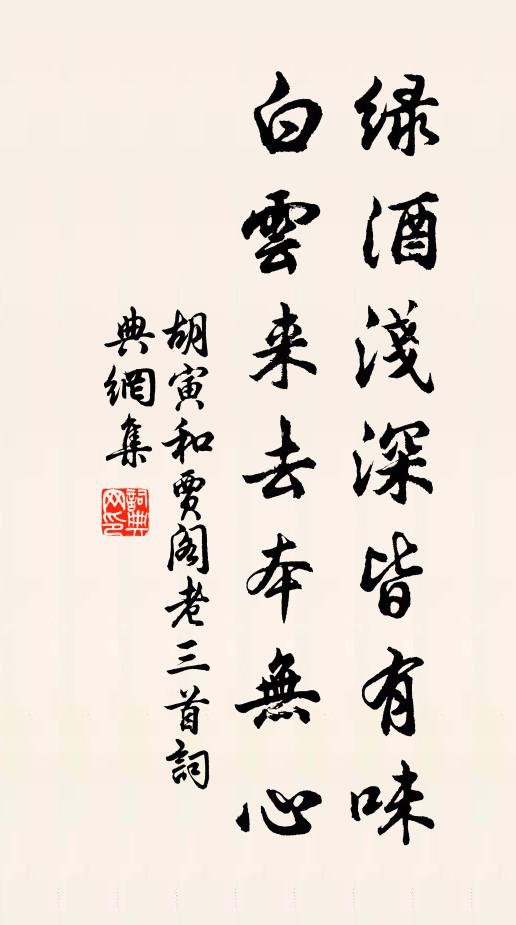 绿酒淺深皆有味
白雲来去本無心
胡寅和賈阁老三首詞
典網集
詞典网印